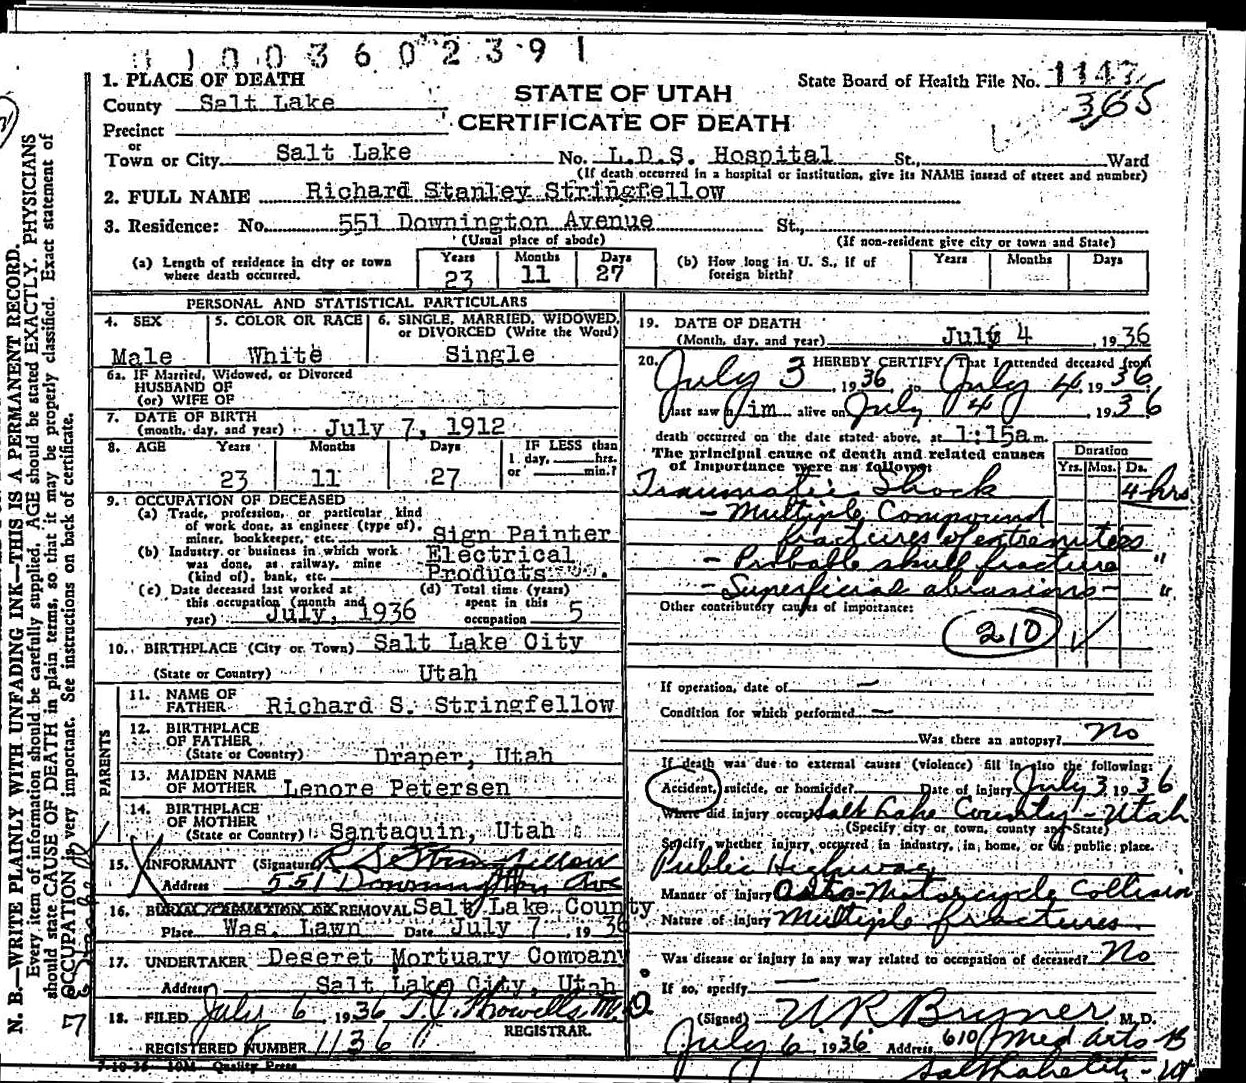 1100360 2391
1. PLACE OF DEATH
County Salt Lake
Precinct
or
Town or City Salt Lake No. L.D.S. Hospital St., Ward
STATE OF UTAH
CERTIFICATE OF DEATH
State Board of Health File No. 1147
365
(If death occurred in a hospital or institution, give its NAME instead of street and number)
2. FULL NAME Richard Stanley Stringfellow
3. Residence: No. 551 Downington Avenue St.,
(Usual place of abode) (If non-resident give city or town and State)
(a) Length of residence in city or town where death occurred. Years 23 Months 11 Days 27
(b) How long in U. S., if of foreign birth? Years Months Days
PERSONAL AND STATISTICAL PARTICULARS
4. SEX Male
5. COLOR OR RACE White
6. SINGLE, MARRIED, WIDOWED, or DIVORCED (Write the Word) Single
6a. IF Married, Widowed, or Divorced
HUSBAND OF
(or) WIFE OF
7. DATE OF BIRTH
(month, day, and year) July 7, 1912
8. AGE Years 23 Months 11 Days 27 IF LESS than 1 day, hrs. or min.?
9. OCCUPATION OF DECEASED
(a) Trade, profession, or particular kind of work done, as engineer (type of), miner, bookkeeper, etc. Sign Painter
(b) Industry or business in which work was done, as railway, mine (kind of), bank, etc. Electrical Products
(c) Date deceased last worked at this occupation (month and year) July, 1936
(d) Total time (years) spent in this occupation 5
10. BIRTHPLACE (City or Town) Salt Lake City
(State or Country) Utah
PARENTS
11. NAME OF FATHER Richard S. Stringfellow
12. BIRTHPLACE OF FATHER
(State or Country) Draper, Utah
13. MAIDEN NAME OF MOTHER Lenore Petersen
14. BIRTHPLACE OF MOTHER
(State or Country) Santaquin, Utah
15. INFORMANT (Signature) R S Stringfellow
Address 551 Downington Ave
16. BURIAL, CREMATION OR REMOVAL Salt Lake County
Place Was. Lawn Date July 7, 1936
17. UNDERTAKER Deseret Mortuary Company
Address Salt Lake City, Utah
18. FILED July 6, 1936 T.J. Howells M.D.
REGISTRAR.
REGISTERED NUMBER 1136
7-10-35 10M Quality Press
19. DATE OF DEATH
(Month, day, and year) July 4, 1936
20. I HEREBY CERTIFY, That I attended deceased from
July 3, 1936, to July 4, 1936
I last saw him alive on July 4, 1936
death occurred on the date stated above, at 1:15a m.
The principal cause of death and related causes of importance were as follows: Duration
Yrs. Mos. Ds.
Traumatic Shock 4 hrs
- Multiple Compound
fractures of extremities
- Probable skull fracture "
- Superficial abrasions - "
Other contributory causes of importance:
210
If operation, date of —
Condition for which performed —
Was there an autopsy? No
If death was due to external causes (violence) fill in also the following:
Accident, suicide, or homicide? Date of injury July 3 1936
Where did injury occur Salt Lake County - Utah
(Specify city or town, county and State)
Specify whether injury occurred in industry, in home, or in public place.
Public Highway
Manner of injury Auto-Motorcycle Collision
Nature of injury Multiple fractures.
Was disease or injury in any way related to occupation of deceased? No
If so, specify —
(Signed) W R Bryner M. D.
July 6, 1936 Address 610 Med arts B
Salt Lake City - Ut
N. B.—WRITE PLAINLY WITH UNFADING INK—THIS IS A PERMANENT RECORD.
Every item of information should be carefully supplied. AGE should be stated EXACTLY. PHYSICIANS
should state CAUSE OF DEATH in plain terms, so that it may be properly classified. Exact statement of
OCCUPATION is very important. See instructions on back of certificate.